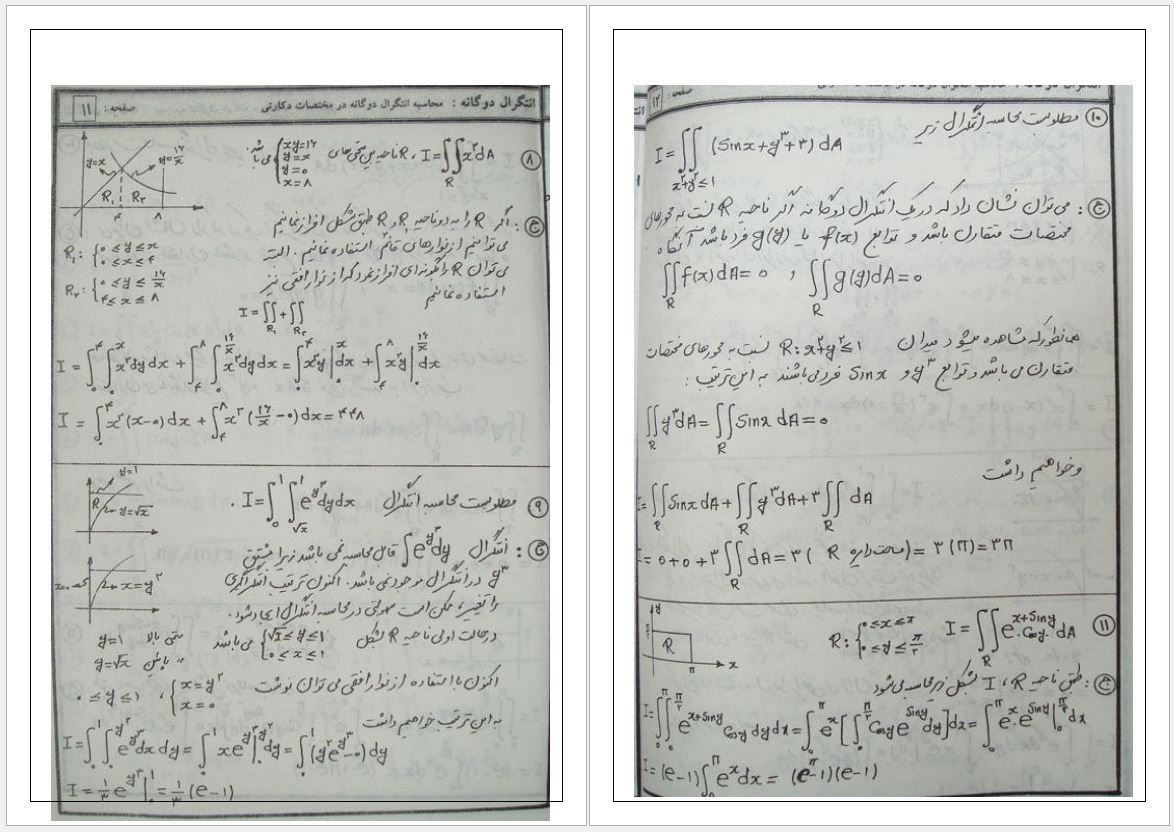 انتگرال دوگانه : محاسبه انتگرال دوگانه در مختصات دکارتی صفحه : ۱۱
۸ I=∬_R x²dA ، R ناحیه بین منحنی‌های { xy=۱۶ , y=x , y=۰ , x=۸ می باشد.
y=x
y=۱۶/x
R₁ R₂
۴ ۸
ج : اگر R را به دو ناحیه R₁ و R₂ طبق شکل افراز نمائیم
می توانیم از نوارهای قائم استفاده نمائیم . البته
می توان R را بگونه ای افراز نمود که از نوار افقی نیز
استفاده نمائیم
R₁: { ۰≤y≤x , ۰≤x≤۴
R₂: { ۰≤y≤۱۶/x , ۴≤x≤۸
I=∬_R₁+∬_R₂
I = ∫₀^۴∫₀^x x²dydx + ∫₄^۸∫₀^(۱۶/x) x²dydx = ∫₀^۴ x²y|₀^x dx + ∫₄^۸ x²y|₀^(۱۶/x) dx
I = ∫₀^۴ x²(x-۰)dx + ∫₄^۸ x²(۱۶/x -۰)dx=۴۴۸
۹ مطلوبست محاسبه انتگرال I=∫₀^۱∫_√x^۱ e^(y³)dydx .
y=1
R
y=√x
x=y²
x=۰
ج : انتگرال ∫e^(y³)dy قابل محاسبه نمی باشد زیرا مشتق
y³ در انتگرال موجود نمی باشد . اکنون ترتیب انتگرالگیری
را تغییر ، ممکن است سهولتی در محاسبه انتگرال ایجاد شود .
در حالت اولی ناحیه R بشکل { √x≤y≤۱ , ۰≤x≤۱ می باشد
منحنی بالا y=۱
" پایین y=√x
اکنون با استفاده از نوار افقی می توان نوشت { x=y² , x=۰ ، ۰≤y≤۱
به این ترتیب خواهیم داشت
I=∫₀^۱∫₀^(y²) e^(y³)dxdy=∫₀^۱ xe^(y³)|₀^(y²) dy=∫₀^۱(y²e^(y³)-۰)dy
I=۱/۳ e^(y³)|₀^۱=۱/۳(e-۱)
صفحه : ۱۲
۱۰ مطلوبست محاسبه انتگرال زیر
I=∬_(x²+y²≤۱) (Sinx+y³+۳) dA
ج : می توان نشان داد که در یک انتگرال دوگانه اگر ناحیه R نسبت به محورهای
مختصات متقارن باشد و توابع f(x) یا g(y) فرد باشد آنگاه
∬_R f(x)dA=۰ , ∬_R g(y)dA=۰
همانطور که مشاهده میشود میدان R:x²+y²≤۱ نسبت به محورهای مختصات
متقارن می باشد و توابع y³ و Sinx فرد می باشند به این ترتیب :
∬_R y³dA=∬_R SinxdA=۰
و خواهیم داشت
I=∬_R SinxdA+∬_R y³dA+۳∬_R dA
I=۰+۰+۳∬_R dA=۳(مساحت دایره R)=۳(π)=۳π
۱۱ I=∬_R e^(x+Siny).CosydA R:{ ۰≤x≤π , ۰≤y≤π/۲
y
π/۲
R
π x
ج : طبق ناحیه R ، I بشکل زیر محاسبه می شود
I=∫₀^π∫₀^(π/۲) e^(x+Siny)Cosydydx=∫₀^π e^x[∫₀^(π/۲) Cosye^(Siny)dy]dx=∫₀^π e^x.e^(Siny)|₀^(π/۲)dx
I=(e-1)∫₀^π e^x dx= (e^π-1)(e-1)